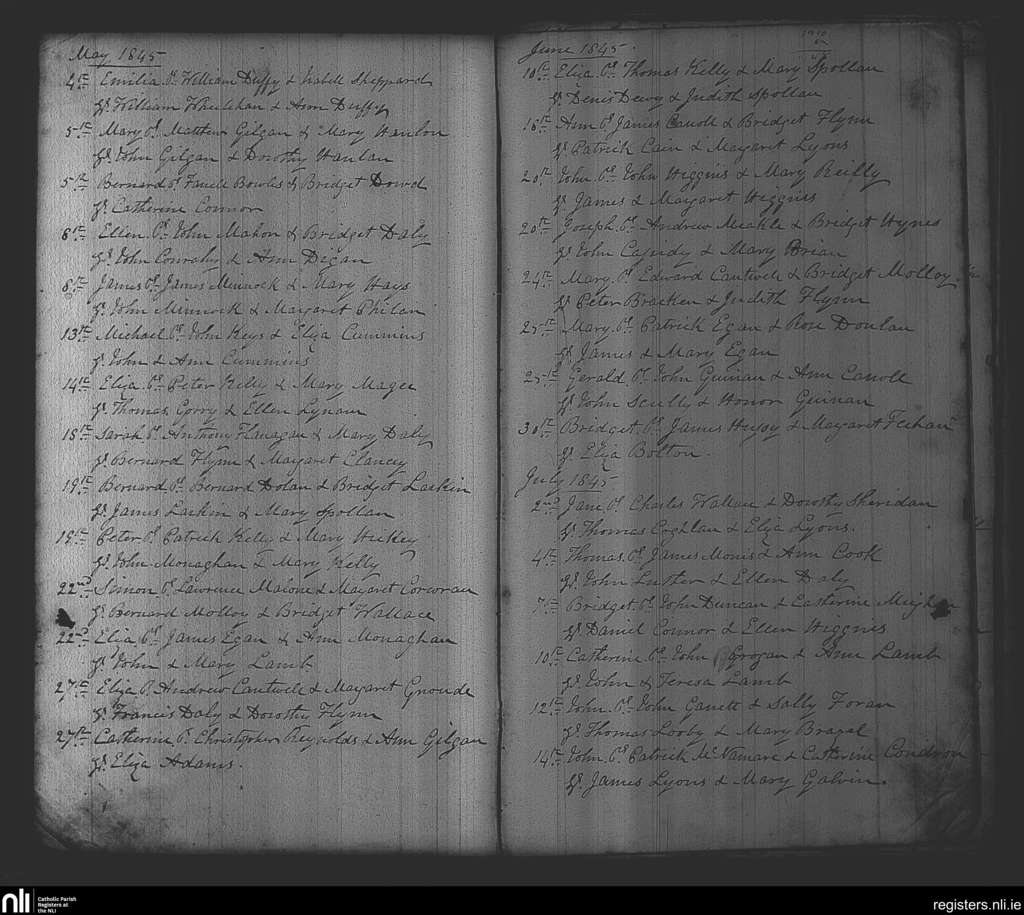 May 1845
4th Emilia Pt. William Duffy & Isabell Sheppard
Gd. William Wheelahan & Ann Duffy
5th Mary Pt. Matthew Gilgan & Mary Hanlon
Gd. John Gilgan & Dorothy Hanlan
5th Bernard Pt. Bowls & Bridget Dowd
Gd. Catherine Connor
8th Ellen Pt. John Mahon & Bridget Daly
Gd. John Conrahy & Ann Degan
8th James Pt. James Minnock & Mary Hays
Gd. John Minnock & Margaret Philan
13th Michael Pt. John Keys & Eliza Cummins
Gd. John & Ann Cummins
14th Eliza Pt. Peter Kelly & Mary Magee
Gd. Thomas Gorry & Ellen Lynam
18th Sarah Pt. Anthony Flanagan & Mary Daly
Gd. Bernard Flynn & Margaret Clancey
19th Bernard Pt. Bernard Dolan & Bridget Larkin
Gd. James Larkin & Mary Spollan
19th Peter Pt. Patrick Kelly & Mary Hickey
Gd. John Monaghan & Mary Kelly
22nd Simon Pt. Lawrence Malone & Margaret Corcoran
Gd. Bernard Molloy & Bridget Wallace
22nd Eliza Pt. James Egan & Ann Monaghan
Gd. John & Mary Lamb
27th Eliza Pt. Andrew Cantwell & Margaret
Gd. Francis Daly & Dorothy Flynn
27th Catherine Pt. Christopher Reynolds & Ann Gilgan
Gd. Eliza Adams.
June 1845.
10th Eliza Pt. Thomas Kelly & Mary Spollan
Gd. Denis Dewy & Judith Spollan
16th Ann Pt. James Carroll & Bridget Flynn
Gd. Patrick Cain & Margaret Lyons
20th John Pt. John Higgins & Mary Reilly
Gd. James & Margaret Higgins
20th Joseph Pt. Andrew Meakle & Bridget Hynes
Gd. John Casidy & Mary Brian
24th Mary Pt. Edward Cantwell & Bridget Molloy
Gd. Peter Bracken & Judith Flynn
25th Mary Pt. Patrick Egan & Rose Donlan
Gd. James & Mary Egan
25th Gerald Pt. John Guinan & Ann Carroll
Gd. John Scully & Honor Guinan
30th Bridget Pt. James Husy & Margaret Feehan
Gd. Eliza Bolton.
July 1845
2nd Jane Pt. Charles Wallace & Dorothy Sheridan
Gd. Thomas Coghlan & Eliza Lyons.
4th Thomas Pt. James Morris & Ann Cook
Gd. John Luther & Ellen Daly
7th Bridget Pt. John Duncan & Catherine Meighan
Gd. Daniel Connor & Ellen Higgins
10th Catherine Pt. John Grogan & Ann Lamb
Gd. John & Teresa Lamb
12th John Pt. John Garrett & Sally Foran
Gd. Thomas Looby & Mary Brazel
14th John Pt. Patrick McNamare & Catherine Condron
Gd. James Lyons & Mary Galvin.
nli Catholic Parish Registers at the NLI
registers.nli.ie